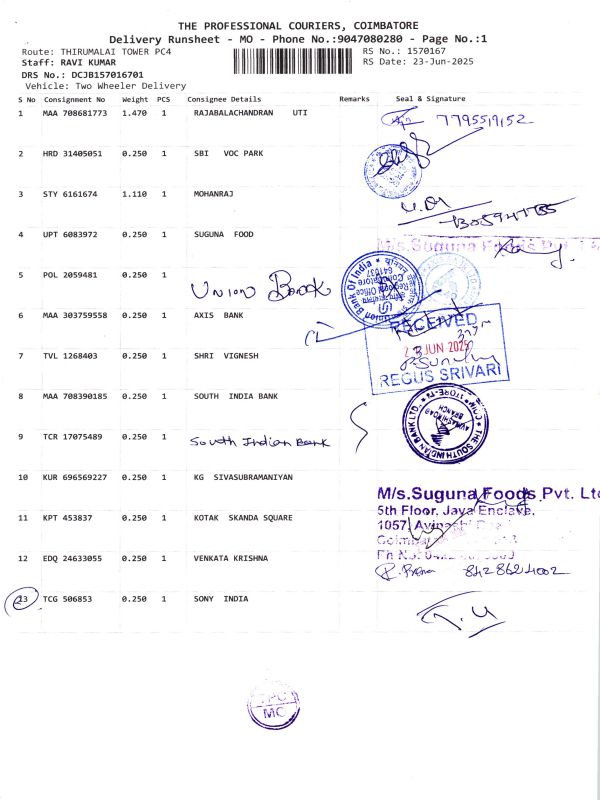 THE PROFESSIONAL COURIERS, COIMBATORE
Delivery Runsheet - MO - Phone No.:9047080280 - Page No.:1
Route: THIRUMALAI TOWER PC4 RS No.: 1570167
Staff: RAVI KUMAR RS Date: 23-Jun-2025
DRS No.: DCJB157016701
Vehicle: Two Wheeler Delivery
S No Consignment No Weight PCS Consignee Details Remarks Seal & Signature
1 MAA 708681773 1.470 1 RAJABALACHANDRAN UTI 7795519152
2 HRD 31405051 0.250 1 SBI VOC PARK
3 STY 6161674 1.110 1 MOHANRAJ
4 UPT 6083972 0.250 1 SUGUNA FOOD
M/s.Suguna Foods Pvt.
5 POL 2059481 0.250 1 Union Bank
Union Bank Of India
Regional Office
Coimbatore
6 MAA 303759558 0.250 1 AXIS BANK
RECEIVED
7 TVL 1268403 0.250 1 SHRI VIGNESH
23 JUN 2025
REGUS SRIVARI
8 MAA 708390185 0.250 1 SOUTH INDIA BANK
THE SOUTH INDIAN BANK LTD.
BRANCH
9 TCR 17075489 0.250 1 South Indian Bank
10 KUR 696569227 0.250 1 KG SIVASUBRAMANIYAN
M/s.Suguna Foods Pvt. Ltd
5th Floor, Jaya Enclave,
11 KPT 453837 0.250 1 KOTAK SKANDA SQUARE
1057, Avinashi
12 EDQ 24633055 0.250 1 VENKATA KRISHNA
8428624002
13 TCG 506853 0.250 1 SONY INDIA
MO